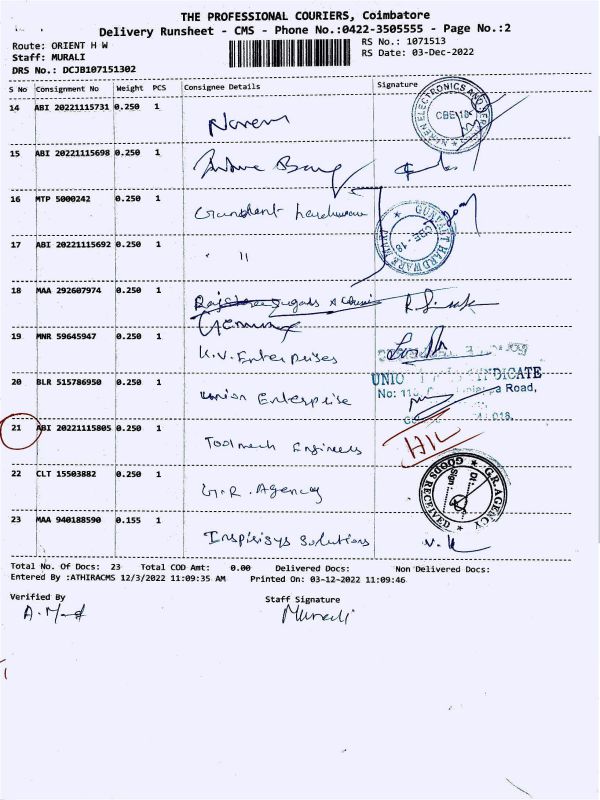 THE PROFESSIONAL COURIERS, Coimbatore
Delivery Runsheet - CMS - Phone No.:0422-3505555 - Page No.:2
Route: ORIENT H W
RS No.: 1071513
Staff: MURALI
RS Date: 03-Dec-2022
DRS No.: DCJB107151302
S No Consignment No Weight PCS Consignee Details Signature
14 ABI 20221115731 0.250 1
CBE-18
15 ABI 20221115698 0.250 1
16 MTP 5000242 0.250 1
GUNVANT HARDWARE MART
CBE-18
17 ABI 20221115692 0.250 1 "
18 MAA 292607974 0.250 1
19 MNR 59645947 0.250 1 K.V. Enterprises
20 BLR 515786950 0.250 1 Union Enterprise
UNIO SYNDICATE
Road,
21 ABI 20221115805 0.250 1 Toolmech Engineers
22 CLT 15503882 0.250 1 G.R. Agency
G.R. AGENCY
GOODS RECEIVED
Dt:
Sign:
23 MAA 940188590 0.155 1 Inspirisys Solutions V.K
Total No. Of Docs: 23 Total COD Amt: 0.00 Delivered Docs: Non Delivered Docs:
Entered By :ATHIRACMS 12/3/2022 11:09:35 AM Printed On: 03-12-2022 11:09:46
Verified By
Staff Signature
Murali